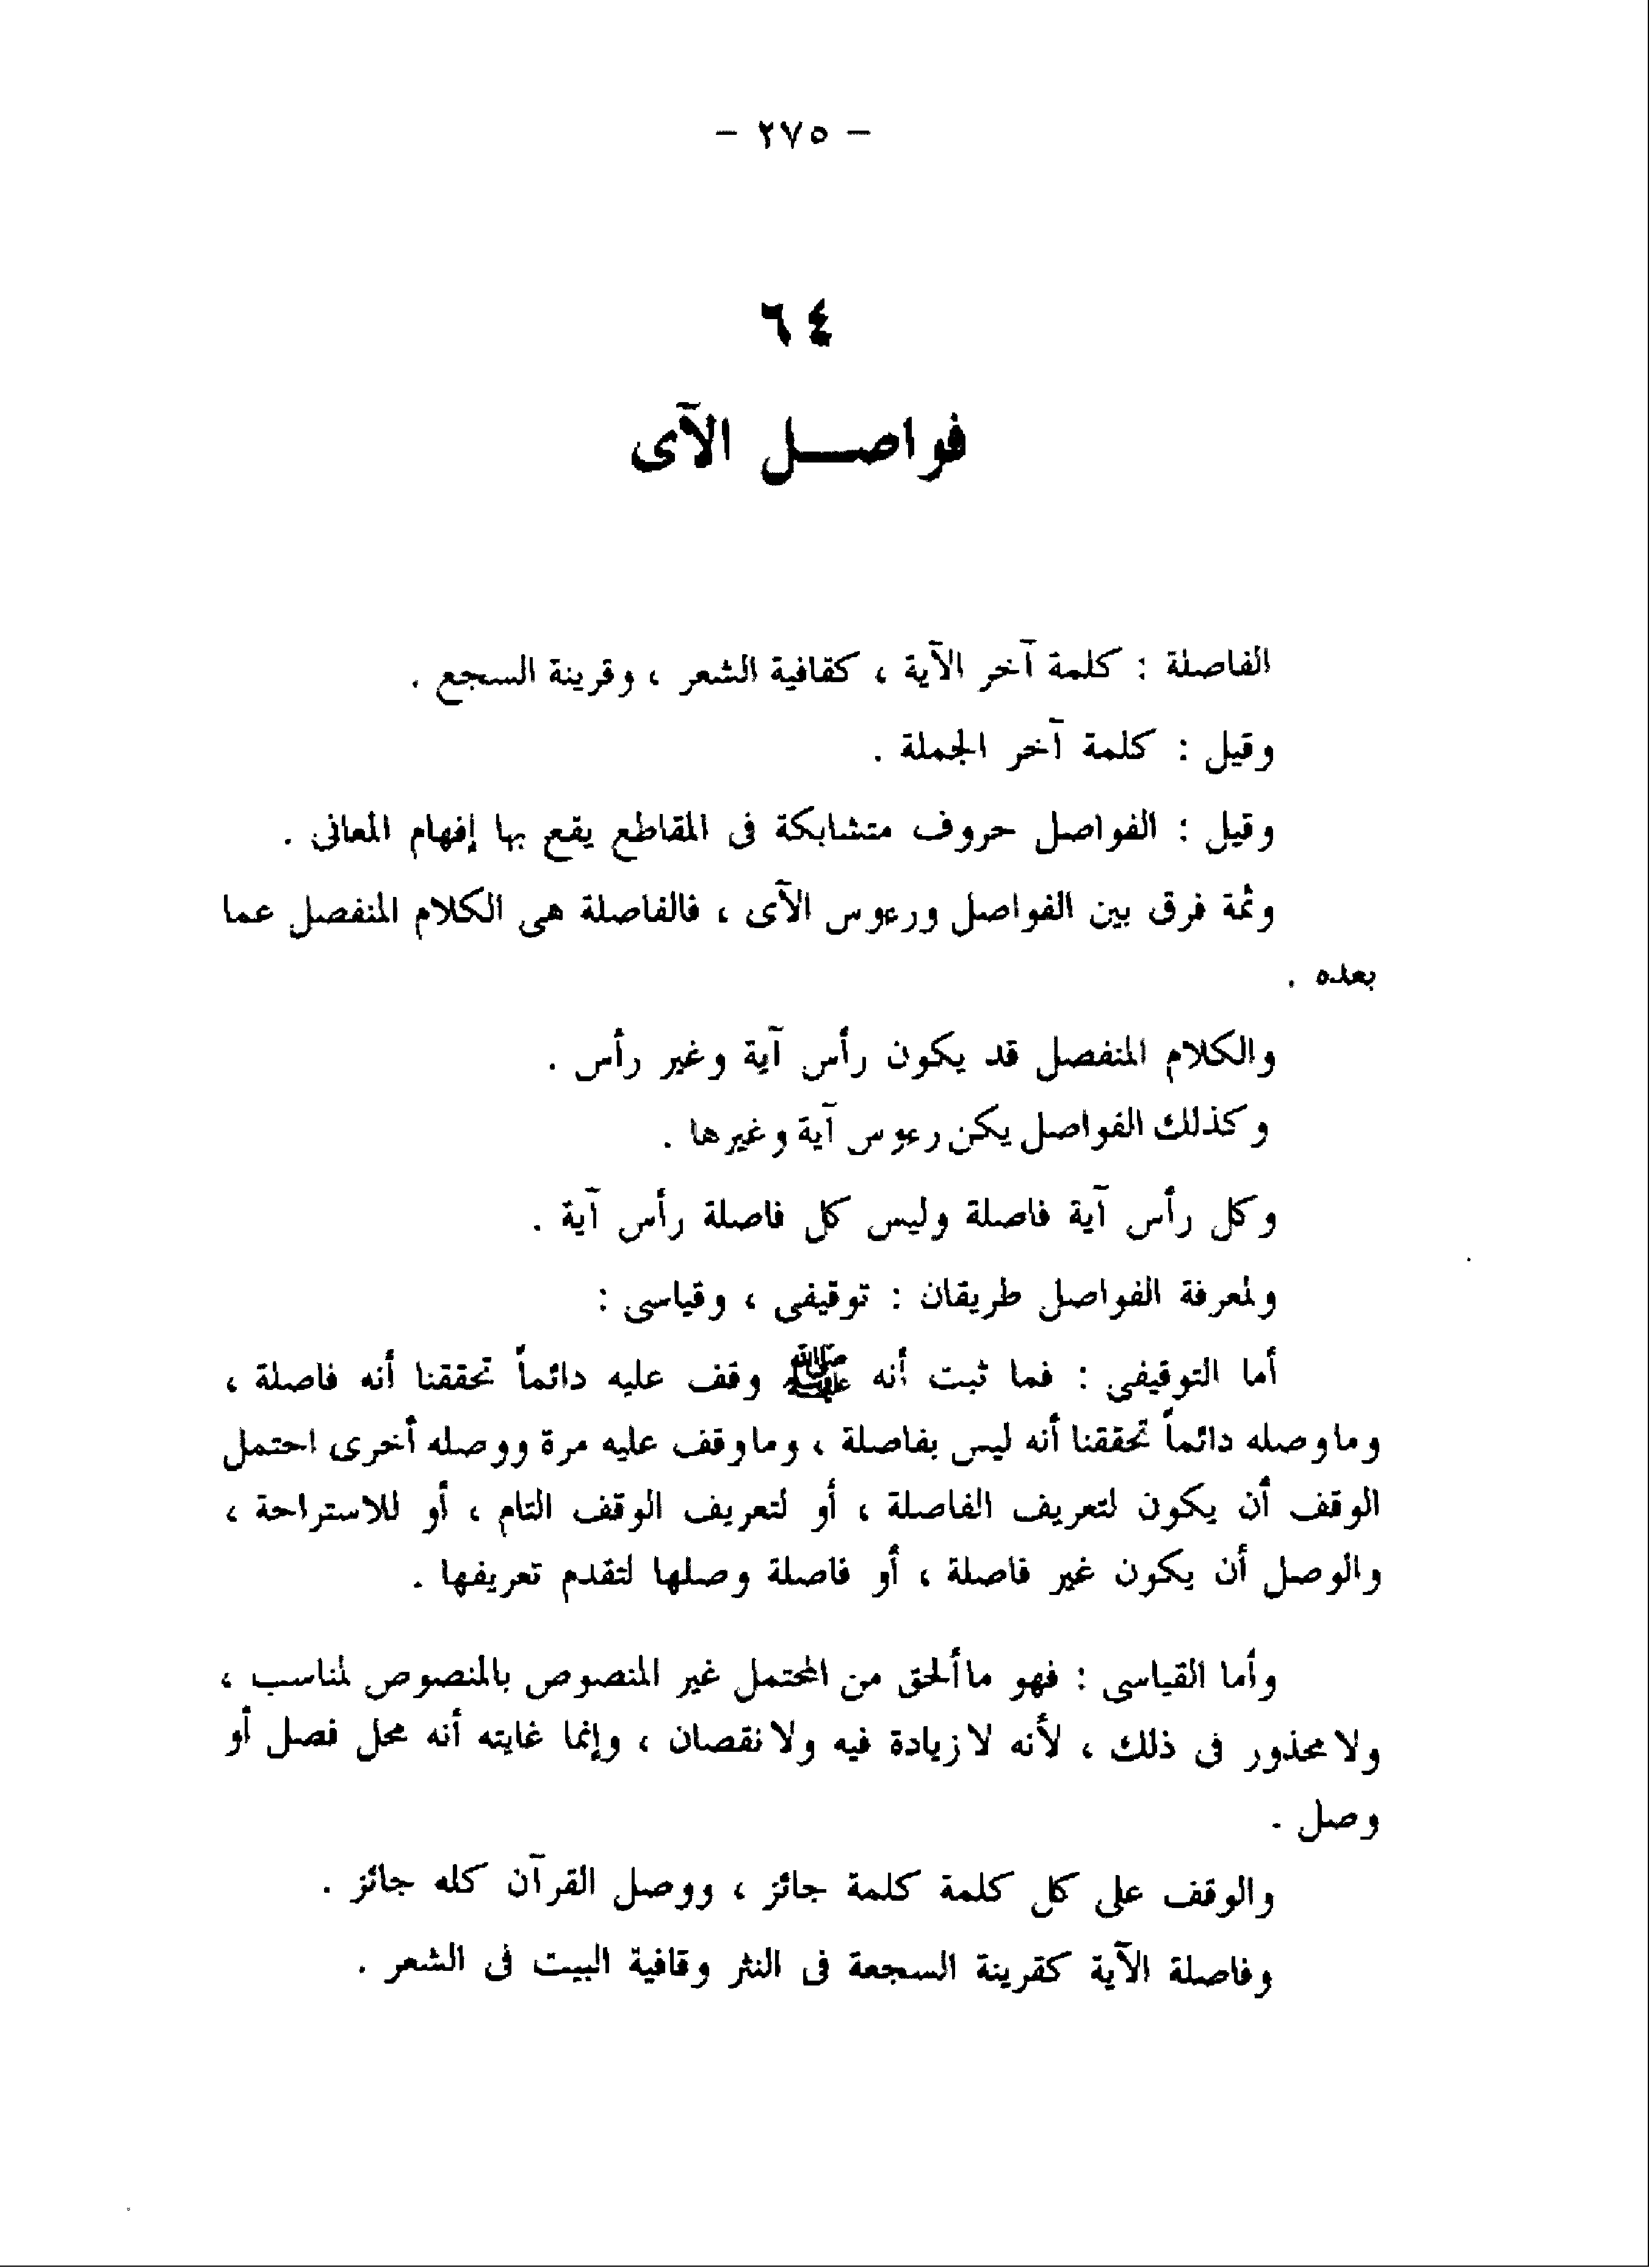 - ٢٧٥ -
٦٤
فواصل الآى
الفاصلة : كلمة آخر الآية ، كقافية الشعر ، وقرينة السجع .
وقيل : كلمة آخر الجملة .
وقيل : الفواصل حروف متشابكة فى المقاطع يقع بها إفهام المعانى .
وثمة فرق بين الفواصل ورءوس الآى ، فالفاصلة هى الكلام المنفصل عما
بعده .
والكلام المنفصل قد يكون رأس آية وغير رأس .
وكذلك الفواصل يكن رءوس آية وغيرها .
وكل رأس آية فاصلة وليس كل فاصلة رأس آية .
ولمعرفة الفواصل طريقان : توقيفى ، وقياسى :
أما التوقيفى : فما ثبت أنه ﷺ وقف عليه دائماً تحققنا أنه فاصلة ،
وما وصله دائماً تحققنا أنه ليس بفاصلة ، وما وقف عليه مرة ووصله أخرى احتمل
الوقف أن يكون لتعريف الفاصلة ، أو لتعريف الوقف التام ، أو للاستراحة ،
والوصل أن يكون غير فاصلة ، أو فاصلة وصلها لتقدم تعريفها .
وأما القياسى : فهو ما ألحق من المحتمل غير المنصوص بالمنصوص لمناسب ،
ولا محذور فى ذلك ، لأنه لا زيادة فيه ولا نقصان ، وإنما غايته أنه محل فصل أو
وصل .
والوقف على كل كلمة كلمة جائز ، ووصل القرآن كله جائز .
وفاصلة الآية كقرينة السجعة فى النثر وقافية البيت فى الشعر .